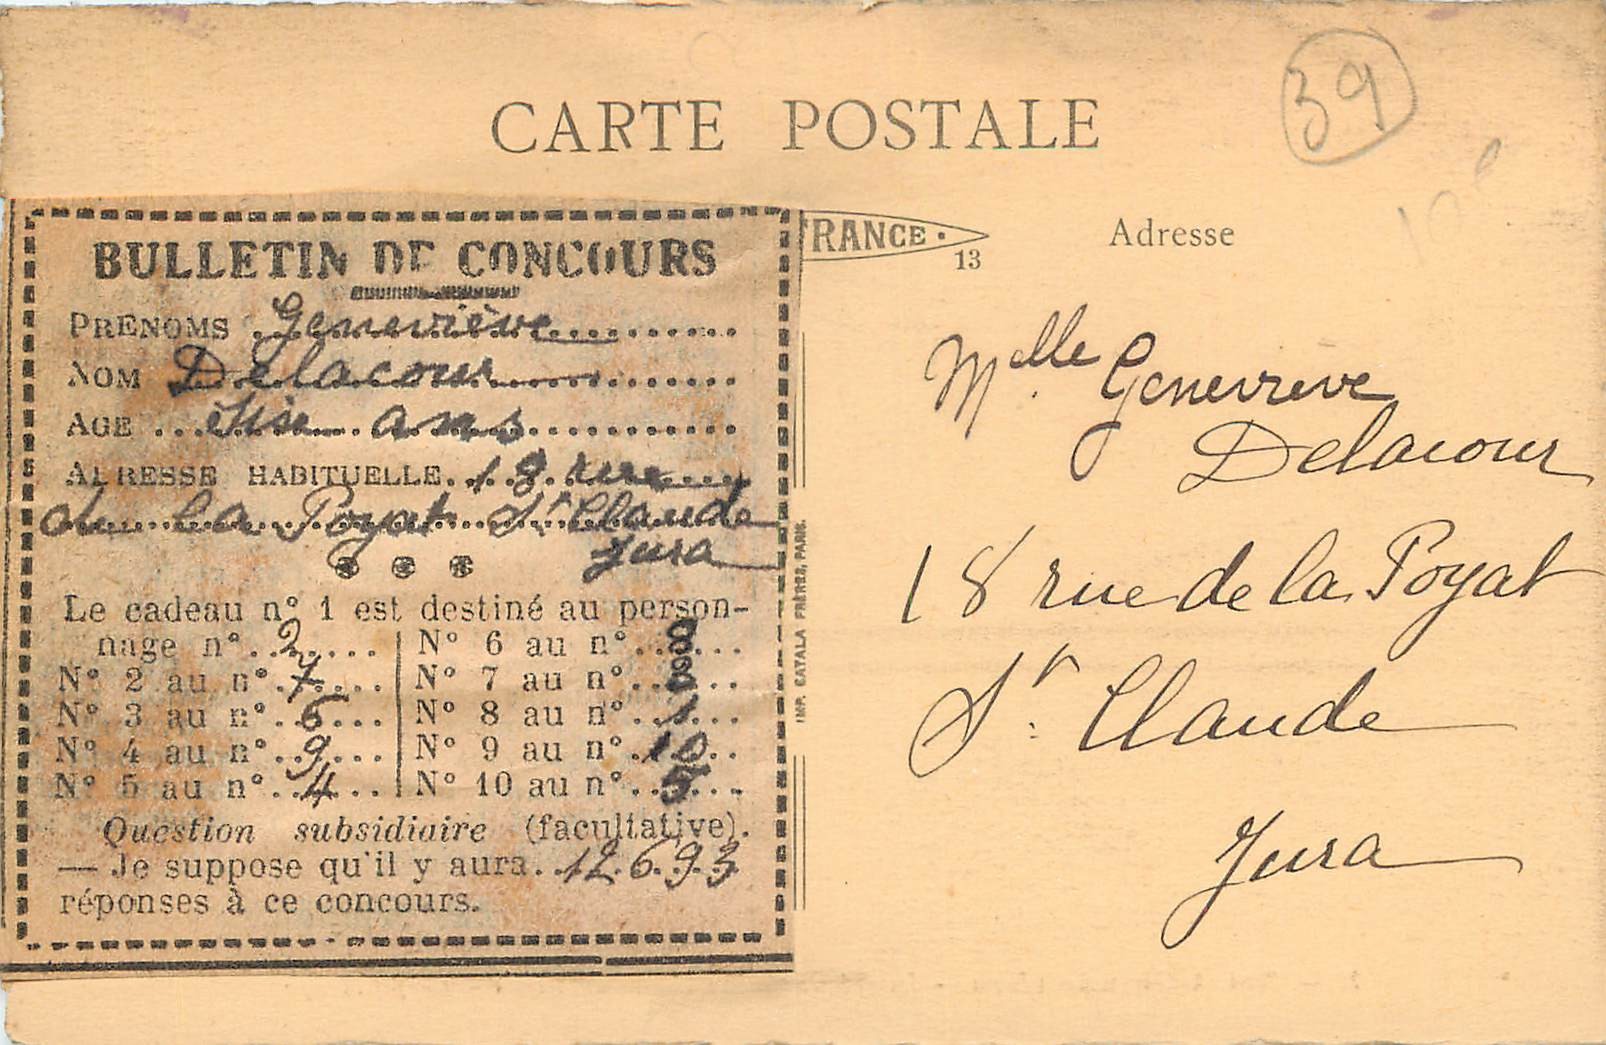 39
CARTE POSTALE
BULLETIN DE CONCOURS
PRÉNOMS Geneviève
NOM Delacour
AGE ans
ADRESSE HABITUELLE 18 rue
de la Poyat St Claude
Jura
Le cadeau n° 1 est destiné au person-
nage n° 2
N° 2 au n° 7
N° 3 au n° 6
N° 4 au n° 9
N° 5 au n° 4
N° 6 au n° 8
N° 7 au n° 3
N° 8 au n° 1
N° 9 au n° 10
N° 10 au n° 5
Question subsidiaire (facultative).
— Je suppose qu'il y aura 12693
réponses à ce concours.
FRANCE
13
IMP. CATALA FRÈRES, PARIS.
Adresse
Melle Genevieve
Delacour
18 rue de la Poyat
St Claude
Jura